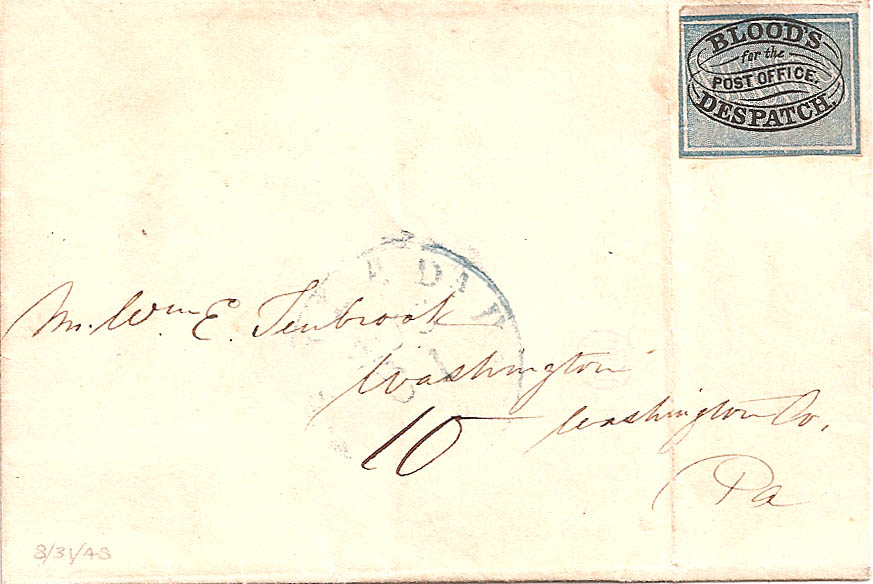 BLOOD'S
for the
POST OFFICE.
DESPATCH.
Mr. Wm E. Tenbrook
Washington
10
Washington Co.
Pa
8/31/48